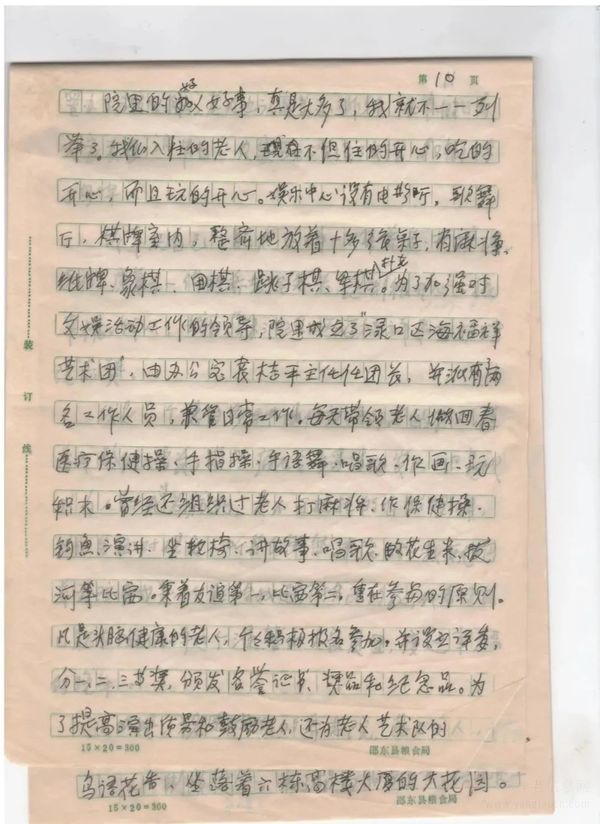 第 10 页
院里的好人好事，真是太多了，我就不一一列
举了。我们入住的老人，现在不但住的开心，吃的
开心，而且玩的开心。娱乐中心设有电影厅，歌舞
厅，棋牌室内，整齐地放着十多张桌子，有麻将、
纸牌、象棋、围棋、跳子棋、军棋、扑克。为了加强对
文娱活动工作的领导，院里成立了"渌口区海福祥
艺术团"，由办公室袁桔平主任任团长，并派有两
名工作人员，兼管日常工作。每天带领老人做回春
医疗保健操、手指操、手语舞、唱歌、作画、玩
积木。曾经还组织过老人打麻将、作保健操、
钓鱼、演讲、坐轮椅、讲故事、唱歌、剥花生米、拔
河等比赛。秉着友谊第一，比赛第二，重在参与的原则。
凡是头脑健康的老人，个个积极报名参加。并设立评委，
分一、二、三等奖，颁发名誉证书、奖品和纪念品。为
了提高演出质量和鼓励老人，还为老人艺术队的
15×20=300 邵东县粮食局
鸟语花香，坐落着六栋高楼大厦的大花园。
15×20=300 邵东县粮食局
装
订
线